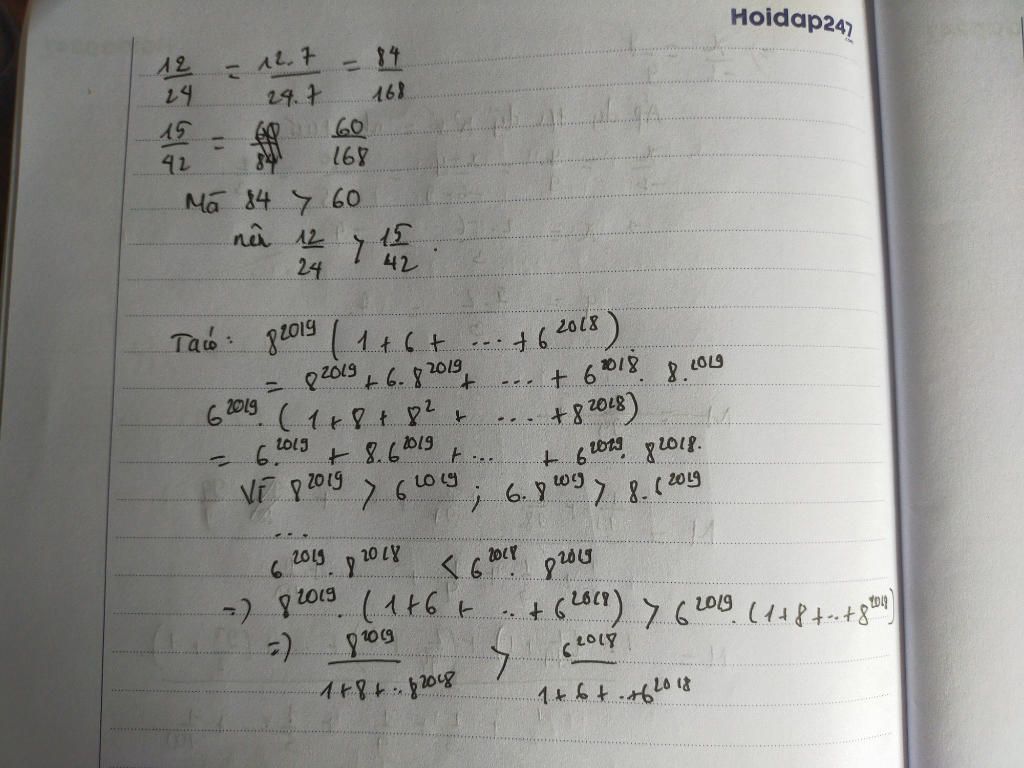 Hoidap247
12/24 = 12.7/24.7 = 84/168
15/42 = 60/168
Mà 84 > 60
nên 12/24 > 15/42.
Ta có: 8^2019 (1 + 6 + ... + 6^2018)
= 8^2019 + 6.8^2019 + ... + 6^2018. 8.^2019
6^2019. (1 + 8 + 8^2 + ... + 8^2018)
= 6.^2019 + 8.6^2019 + ... + 6^2019. 8^2018.
Vì 8^2019 > 6^2019 ; 6.8^2019 > 8.6^2019
...
6^2019. 8^2018 < 6^2018. 8^2019
=> 8^2019. (1 + 6 + .. + 6^2018) > 6^2019. (1 + 8 + .. + 8^2019)
=> 8^2019/1 + 8 + .. 8^2018 > 6^2018/1 + 6 + .. + 6^2018